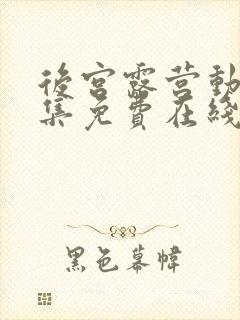 後宮露营動
集免費在綫
黑色幕幃